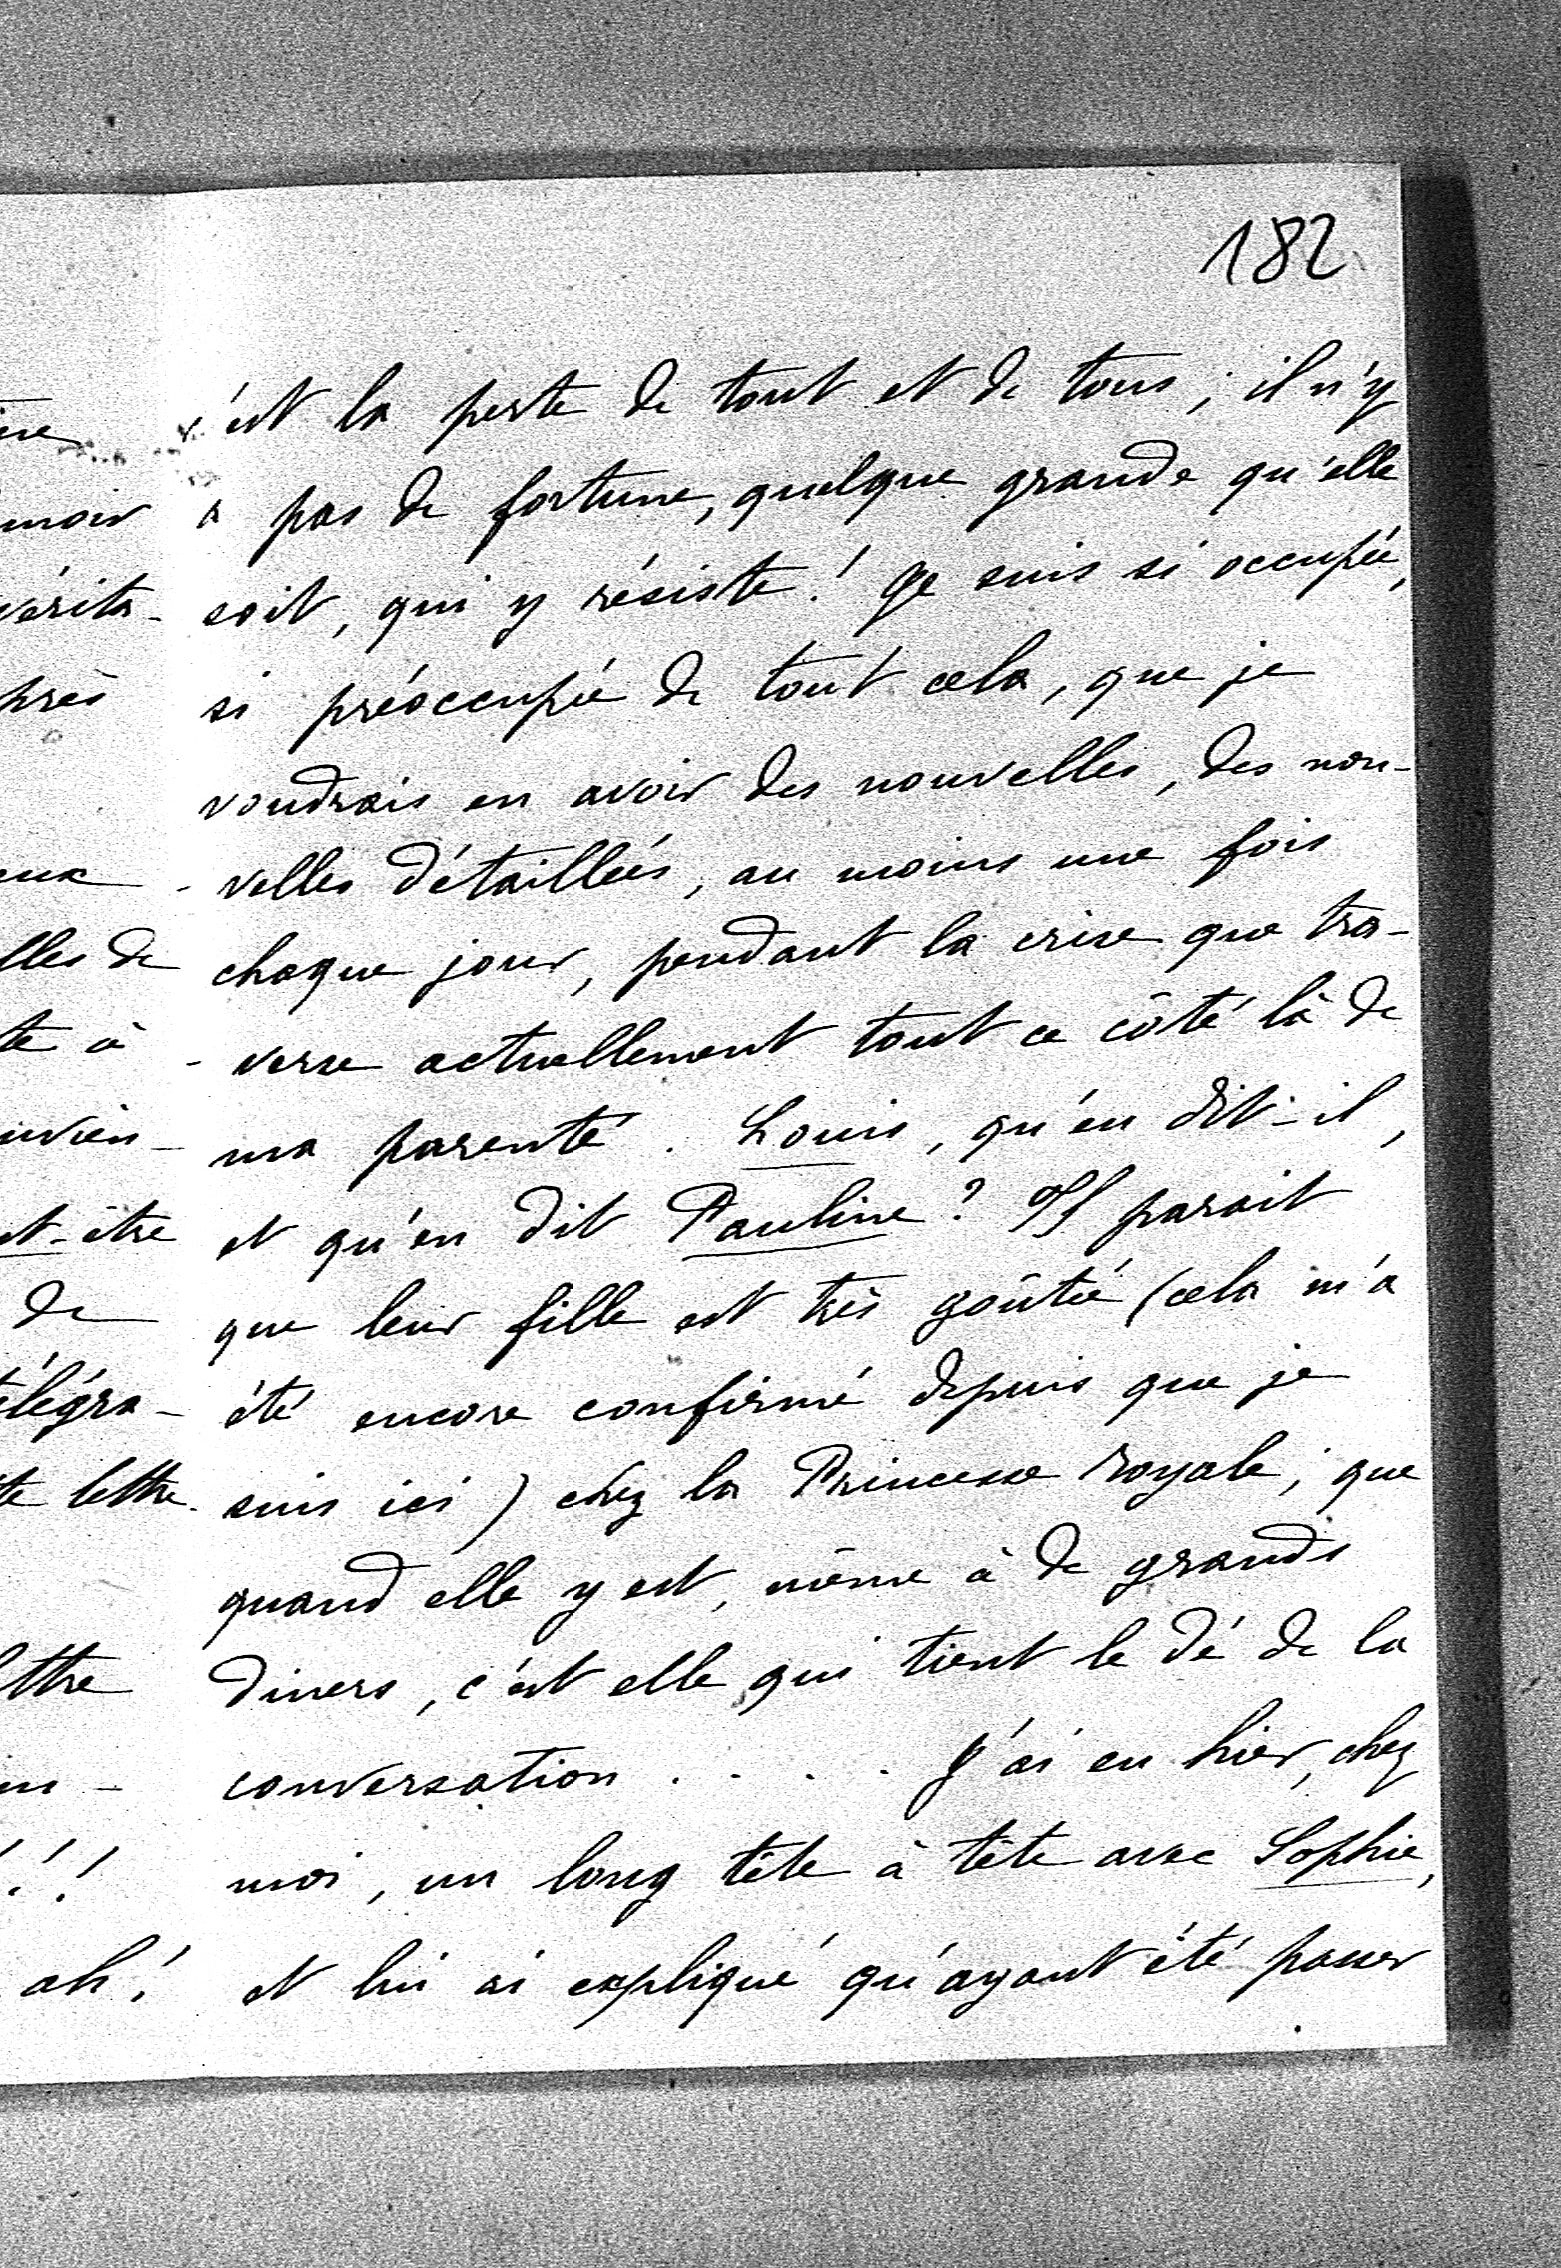 182
c'est la perte de tout et de tous ; il n'y
a pas de fortune, quelque grande qu'elle
soit, qui y résiste ! Je suis si occupée,
si préoccupée de tout cela, que je
voudrais en avoir des nouvelles, des nou-
velles détaillées, au moins une fois
chaque jour, pendant la crise que tra-
verse actuellement tout ce côté là de
ma parenté. Louis, qu'en dit-il,
et qu'en dit Pauline ? Il parait
que leur fille est très goûtée (cela m'a
été encore confirmé depuis que je
suis ici) chez la Princesse royale ; que
quand elle y est, même à de grands
diners, c'est elle qui tient le dé de la
conversation . . . . J'ai eu hier, chez
moi, un long tête à tête avec Sophie,
et lui ai expliqué qu'ayant été passer
moir
vérita-
près
eux
lles de
te à
uvien-
et-être
de
télégra-
te lettre.
ettre
en-
! ! !
ah !